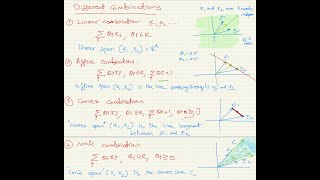 Different Combinations
x₁ and x₂ are linearly
① Linear combination: x₁, x₂ ....
∑ θᵢ xᵢ, θᵢ ∈ R
linear span {x₁, x₂} = R²
② Affine combination:
∑ θᵢ xᵢ, θᵢ ∈ R, ∑ θᵢ = 1
affine span (x₁, x₂) is the line passing through x₁ and x₂
③ Convex combination:
∑ θᵢ xᵢ, θᵢ ∈ R, ∑ θᵢ = 1
"convex span" (x₁, x₂) is the line segment
between x₁ and x₂
④ Conic combination:
∑ θᵢ xᵢ, θᵢ ≥ 0
"Conic span" (x₁, x₂) is the convex cone C